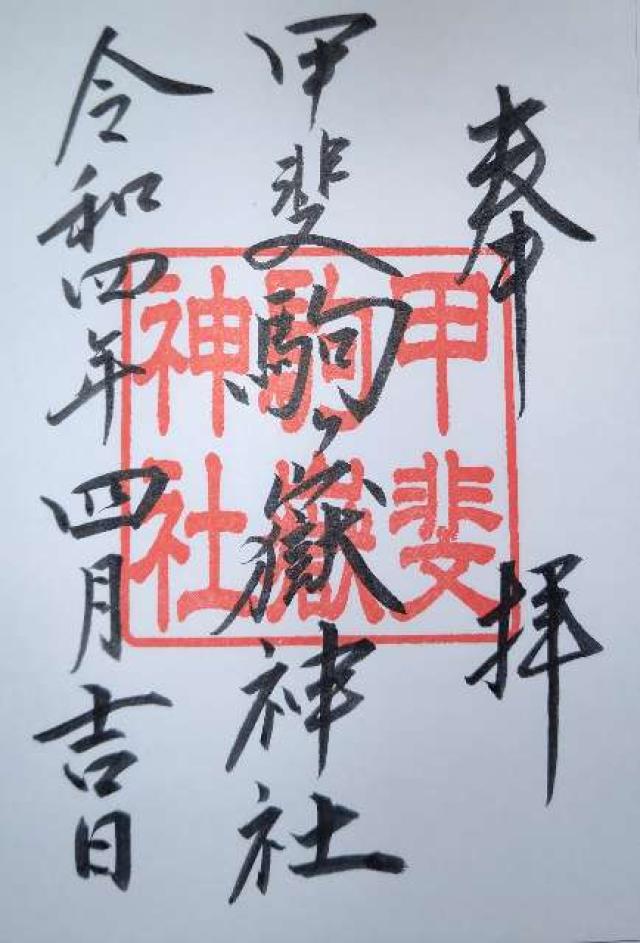 奉拝
甲斐駒ヶ嶽神社
令和四年四月吉日
甲斐
駒嶽
神社